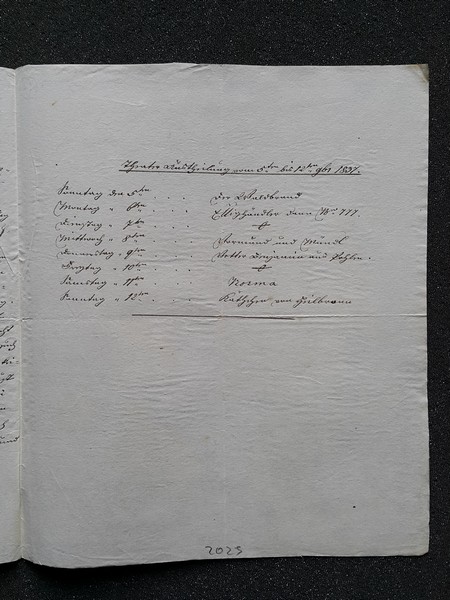 Theater Austheilung vom 5ten bis 12ten 9br 1837.
Sonntag den 5ten . . . Der Waldbrand
Montag " 6ten . . . Essighändler dann No 777.
Dienstag " 7ten . . . —
Mittwoch " 8ten . . . Vormund und Mündl
Donnerstag " 9ten . . . Vetter Benjamin aus Pohlen.
Freytag " 10ten . . . —
Samstag " 11ten . . . Norma
Sonntag " 12ten . . . Käthchen von Heilbronn
2025